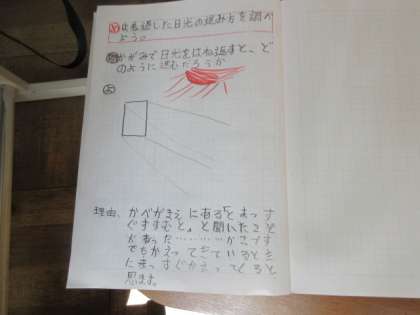 め はね返した日光の進み方を調べ
よう。
問 かがみで日光をはね返すと、ど
のように進むだろうか
予
理由、かべがまえに有ると まっす
ぐすすむと。と聞いたこと
があった…………
でもかえって
にまっすぐかえってくると
思います。